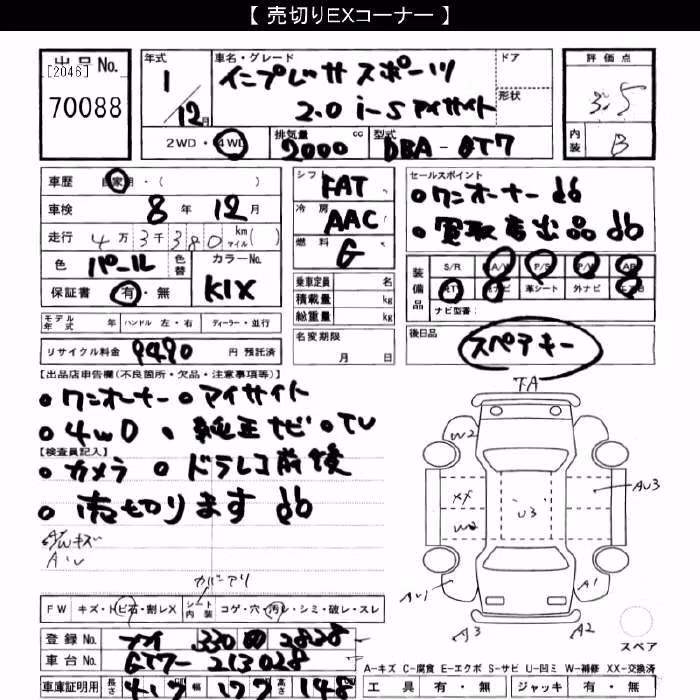 【 売切りEXコーナー 】
出品No.
[2046]
70088
年式
1
12月
車名・グレード
インプレッサ スポーツ
2.0 i-S アイサイト
ドア
形状
評価点
3.5
内装
B
2WD・4WD
排気量
2000 cc
型式
DBA-GT7
車歴 自家用・( )
車検 8年 12月
走行 4万3千380 km マイル( )
色 パール 色替
カラーNo. K1X
保証書 有・無
シフト FAT
冷房 AAC
燃料 G
乗車定員 名
積載量 kg
総重量 kg
セールスポイント
ワンオーナー
買取店出品
装備品
S/R A/W P/S P/W AB
革シート 外ナビ
ナビ型番:
モデル年式 年 ハンドル 左・右 ディーラー・並行
名変期限
月 日
後日品
スペアキー
リサイクル料金 9490 円 預託済
【出品店申告欄(不良箇所・欠品・注意事項等)】
ワンオーナー アイサイト
4WD 純正ナビ TV
【検査員記入】
カメラ ドラレコ前後
売切ります
A.Wキズ
下A
W2
XX
W2
U3
AU3
AU1
A1
A3
A2
スペア
カバーアリ
FW キズ・トビ石・割レX シート内装 コゲ・穴・汚レ・シミ・破レ・スレ
登録No. 330 2828
車台No. GT7-213028
A-キズ C-腐食 E-エクボ S-サビ U-凹ミ W-補修 XX-交換済
車庫証明用 長さ 417 幅 177 高さ 148
工具 有・無 ジャッキ 有・無